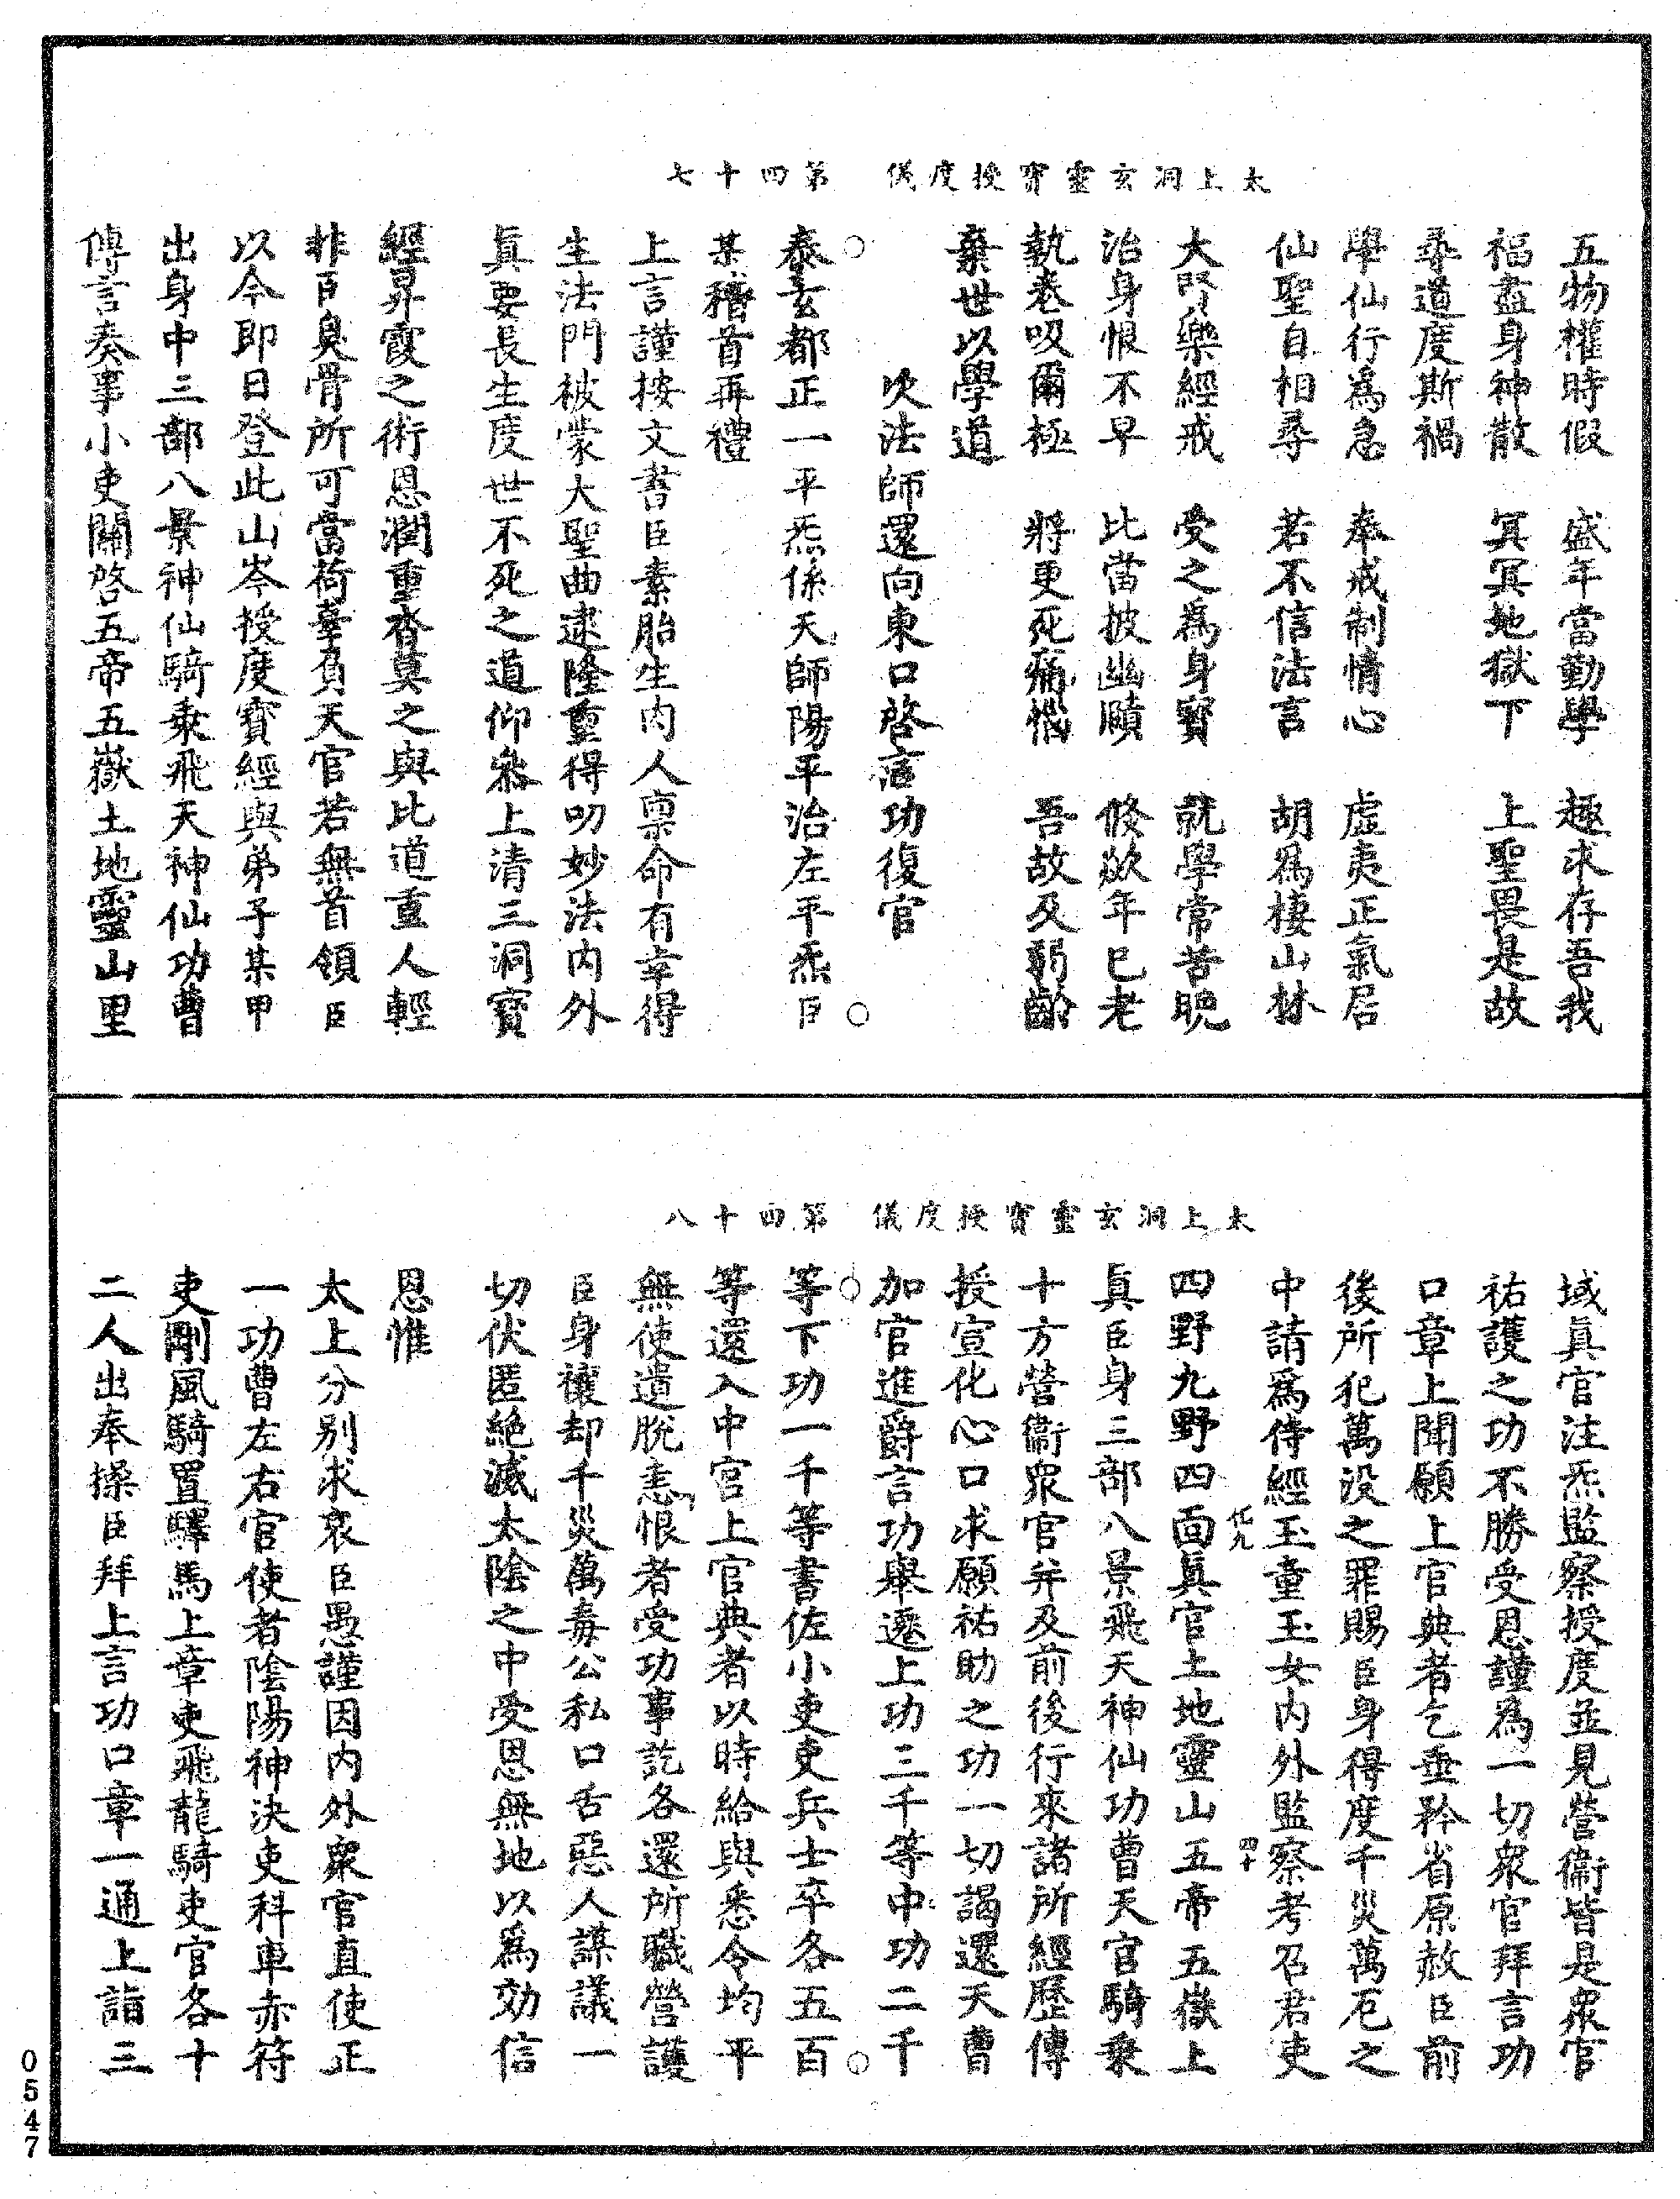 太上洞玄靈寶授度儀　第四十七
五物權時假　盛年當勤學　趣求存吾我
福盡身神散　冥冥地獄下　上聖畏是故
尋道度斯禍
學仙行爲急　奉戒制情心　虛夷正氣居
仙聖自相尋　若不信法言　胡爲棲山林
大賢樂經戒　受之爲身寶　就學常苦晚
治身恨不早　比當披幽賾　倏欻年已老
執卷吸爾極　將更死痛惱　吾故及弱齡
棄世以學道
次法師還向東口啓言功復官
泰玄都正一平炁係天師陽平治左平炁臣
某稽首再禮
上言謹按文書臣素胎生肉人稟命有幸得
生法門被蒙大聖曲逮隆重得叨妙法内外
眞要長生度世不死之道仰叅上清三洞寶
經昇霞之術恩潤重沓莫之與比道重人輕
非臣臭骨所可當荷辜負天官若無首領臣
以今即日登此山岑授度寶經與弟子某甲
出身中三部八景神仙騎乗飛天神仙功曹
傳言奏事小吏關啓五帝五嶽土地靈山里
太上洞玄靈寶授度儀　第四十八
域眞官注炁監察授度並見營衞皆是衆官
祐護之功不勝受恩謹爲一切衆官拜言功
口章上聞願上官典者乞垂矜省原赦臣前
後所犯萬没之罪賜臣身得度千災萬厄之
中請爲侍經玉童玉女内外監察考召君吏
化九　四十
四野九野四面眞官土地靈山五帝五嶽上
眞臣身三部八景飛天神仙功曹天官騎乗
十方營衞衆官并及前後行來諸所經歷傳
授宣化心口求願祐助之功一切謁還天曹
加官進爵言功舉遷上功三千等中功二千
等下功一千等書佐小吏吏兵士卒各五百
等還入中宫上官典者以時給與悉令均平
無使遺脫恚恨者受功事訖各還所職營護
臣身禳却千災萬毒公私口舌惡人謀議一
切伏匿絶滅太陰之中受恩無地以爲効信
恩惟
太上分别求哀臣愚謹因内外衆官直使正
一功曹左右官使者陰陽神決吏科車赤符
吏剛風騎置驛馬上章吏飛龍騎吏官各十
二人出奉操臣拜上言功口章一通上詣三
0547